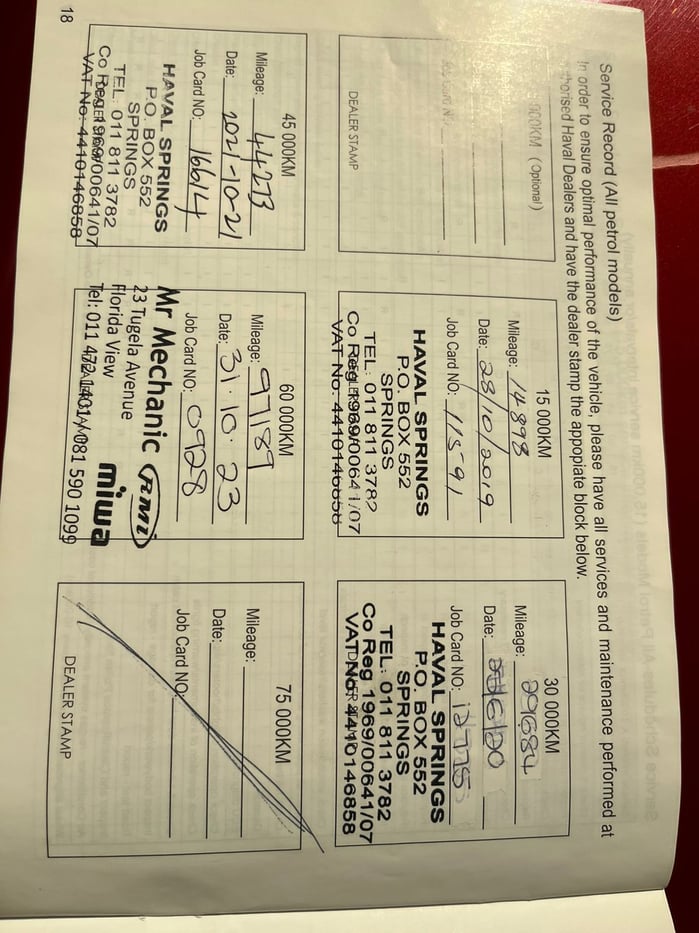 Service Record (All petrol models)
In order to ensure optimal performance of the vehicle, please have all services and maintenance performed at
authorised Haval Dealers and have the dealer stamp the appopiate block below.
000KM (Optional)
Job Card NO:
DEALER STAMP
15 000KM
Mileage: 14898
Date: 28/10/2019
Job Card NO: 11591
HAVAL SPRINGS
P.O. BOX 552
SPRINGS
TEL: 011 811 3782
Co Reg 1969/00641/07
VAT No: 4410146858
30 000KM
Mileage: 29684
Date: /6/20
Job Card NO: 12775
HAVAL SPRINGS
P.O. BOX 552
SPRINGS
TEL: 011 811 3782
Co Reg 1969/00641/07
VAT No: 4410146858
45 000KM
Mileage: 44273
Date: 2021-10-21
Job Card NO: 16614
HAVAL SPRINGS
P.O. BOX 552
SPRINGS
TEL: 011 811 3782
Co Reg 1969/00641/07
VAT No: 4410146858
60 000KM
Mileage: 97189
Date: 31.10.23
Job Card NO: 0928
Mr Mechanic rmi
23 Tugela Avenue
Florida View miwa
Tel: 011 472 1401 / 081 590 1099
75 000KM
Mileage:
Date:
Job Card NO:
DEALER STAMP
18